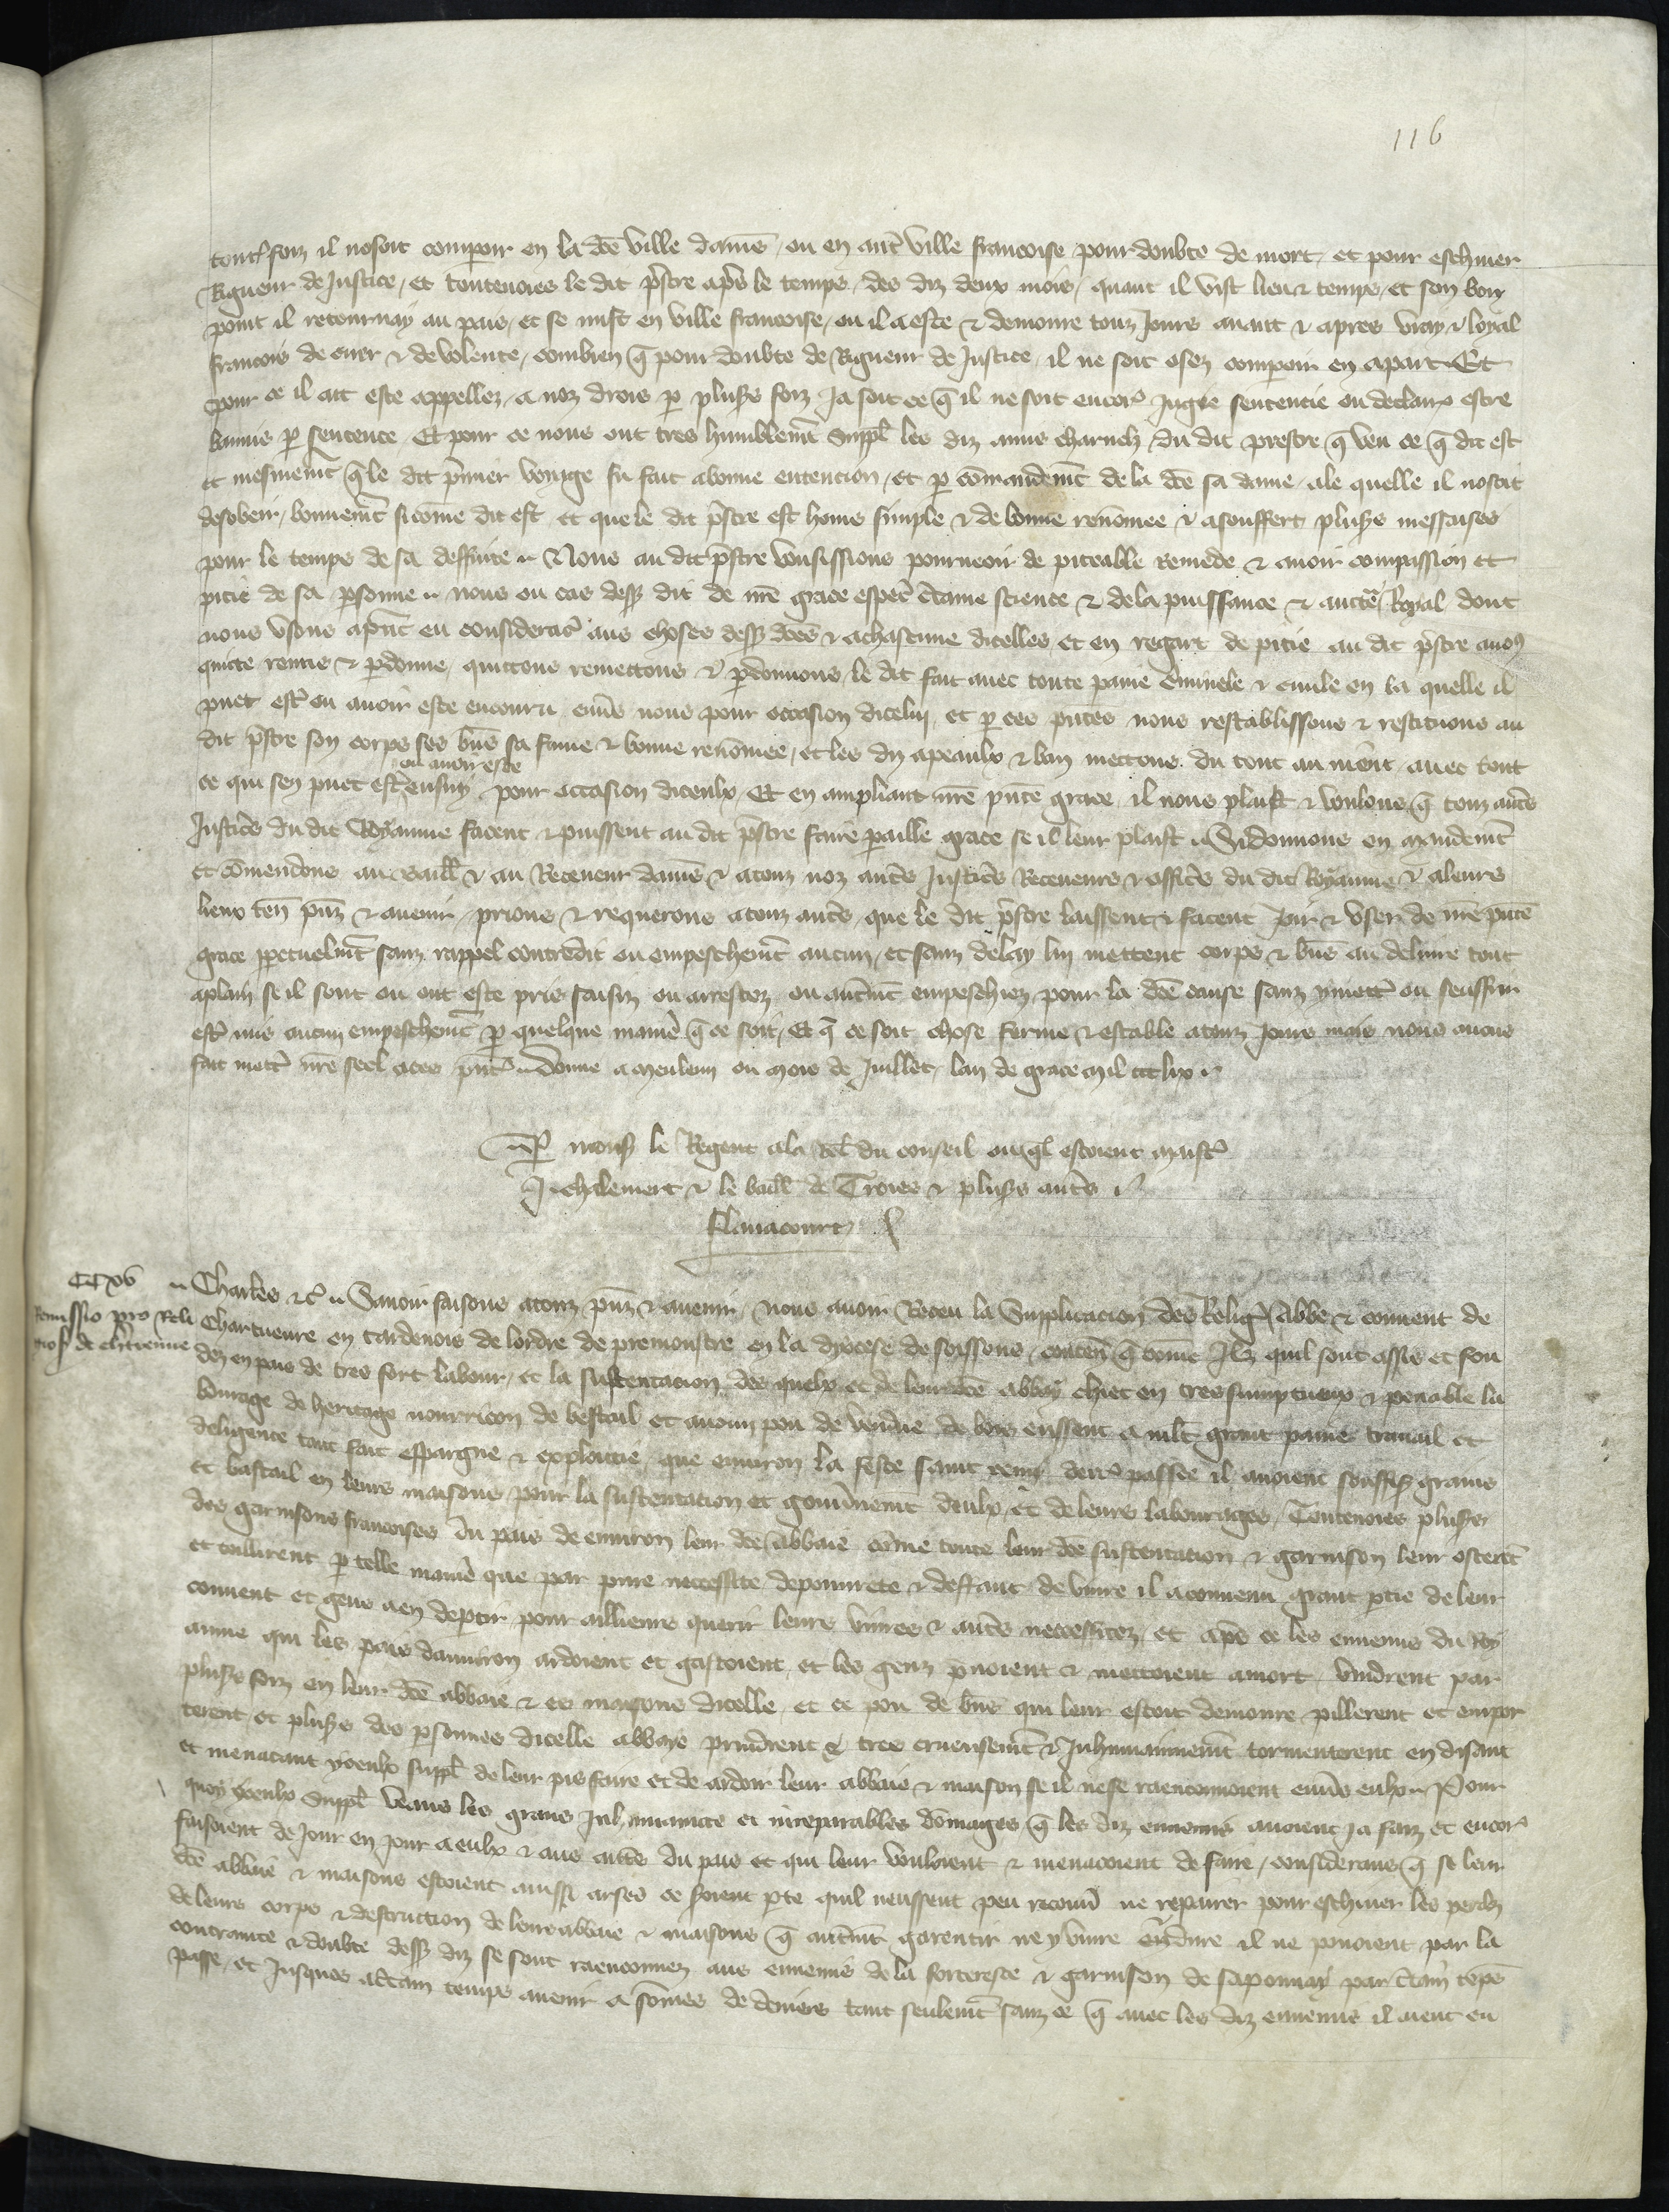 116
toutesfoiz il nosoit comparoir en la dce ville damiens ou en autre ville francoise pour doubte de mort et pour eschiver
Rigueur de Justice, et toutevoies le dit prestre apres le temps des diz deux mois, quant il vist lieu & temps et son bon
point il retournay au pais, et se mist en ville francoise, ou il a este & demoure touz Jours avant & apres vray & loyal
francois de cuer & de volente, combien que pour doubte de Rigueur de Justice il ne soit osez comparoir en apart Et
pour ce il ait este appellez a noz drois par plusrs foiz Ja soit ce que il ne soit encores Jugie sentencie ou declaire estre
bannis par sentence Et pour ce nous ont tres humblement suppl les diz amis charnelz du dit prestre que veu ce que dit est
et mesmement que le dit premier voyage fu fait a bonne entencion, et par commandement de la dce sa dame, a le quelle il nosoit
desobeir bonnement si comme dit est et que le dit prestre est homs simple & de bonne renommee & a souffert plusrs messaises
pour le temps de sa deffuite Nous au dit prestre vousissions pourveoir de piteable remede & avoir compassion et
pitie de sa personne nous ou cas dessus dit de nre grace especial certaine science & de la puissance & auctorite Royal dont
nous usons a present eu consideracion aus choses dessus dces & a chascune dicelles et en regart de pitie au dit prestre avons
quicte remis & pardonne, quictons remettons & pardonnons le dit fait avec toute paine criminele & civile en la quelle il
puet estre ou avoir este encouru envers nous pour occasion dicelui et par ces presentes nous restablissons & restituons au
dit prestre son corps ses biens sa fame & bonne renommee, et les diz apeaulx & ban mettons du tout au nient avec tout
ou avoir este
ce qui sen puet estre ensuy pour occasion diceulx, Et en ampliant nre presente grace, il nous plaist & voulons que touz autres
Justices du dit Royaume facent & puissent au dit prestre faire pareille grace se il leur plaist Si donnons en mandement
et commendons au baill & au Receveur damiens & a touz noz autres Justices Receveurs & offices du dit Royaume & a leurs
lieux ten presens & avenir, prions & requerons a touz autres que le dit prestre laissent & facent Joir & user de nre presente
grace perpetuelment sanz rappel contredit ou empeschement aucun, et sanz delay lui mettent corps & biens au delivre tout
a plain se il sont ou ont este pris saisiz ou arrestez ou autrement empeschiez pour la dce cause sanz y mettre ou seuffrir
estre mis aucun empeschement par quelque maniere que ce soit, Et que ce soit chose ferme & estable a touz Jours mais nous avons
fait mettre nre seel a ces presentes Donne a Meleun ou mois de Juillet, lan de grace mil ccc lix
Par mons le Regent a la rel du conseil ouquel estoient maistre
J. Chalemart & le baill de Troies & plusrs autres
Flavacourt
CCXV
Remissio pro Reli
gios de Chartreuve
Charles &c Savoir faisons a touz presens & avenir, nous avoir Receu la Supplicacion des Religieux Abbe & convent de
Chartreuve en Tardenois de lordre de premonstre en la dyocese de Soissons, contenant que comme Ilz quil sont assis et fon
dez en pais de tres fort labour, et la sustentacion des quelx et de leur dce abbay chiet en tres sumptueux & penable la
bourage de heritage nourricon de bestail et aucun pou de vendue de bois eussent a mlt grant paine travail et
deligence tant fait espargne & exploictie, que environ la feste saint remi derr passee il avoient souffis grains
et bestail en leurs maisons pour la sustentacion et gouvernement deulx, et de leurs labourages, Toutevoies plusrs
des garnisons francoises du pais de environ leur dce abbaie comme toute leur dce sustentacion & garnison leur osterent
et tollirent par telle maniere que par pure necessite de povrete & deffaut de vivre il a convenu grant partie de leur
convent et gens a en departir pour aillieurs querir leurs vivres & autres necessitez, et apres ce les ennemis du Roy
aume qui les pais denviron ardoient et gastoient, et les genz prenoient & mettoient a mort, vindrent par
plusrs foiz en leur dce abbaie & es maisons dicelle, et ce pou de biens qui leur estoit demoure pillerent et empor
terent, et plusrs des personnes dicelle abbaye prindrent & tres crueusement & Inhumainement tormenterent en disant
et menacant yceulx suppl de leur pis faire et de ardoir leur abbaie & maison se il ne se raenconnoient envers eulx Pour
quoy yceulx suppl Veans les grans Inhumanite et irreparables dommages que les diz ennemis avoient ja faiz et encores
faisoient de Jour en Jour a eulx & aus autres du pais et qui leur vouloient & menacoient de faire, considerans que se leur
dce abbaie & maisons estoient ainssi arses ce seroient perte quil neussent peu recouvrer ne reparer pour eschiver les perilz
de leurs corps & destruction de leurs abbaie & maisons que autrement garentir ne y vivre endurer il ne povoient par la
contrainte & doubte dessus diz se sont raenconnez aus ennemis de la forteresce & garnison de Saponnay par certain temps
passe, et Jusques a certain temps avenir a sommes de deniers tant seulement sanz ce que avec les diz ennemis il aient eu